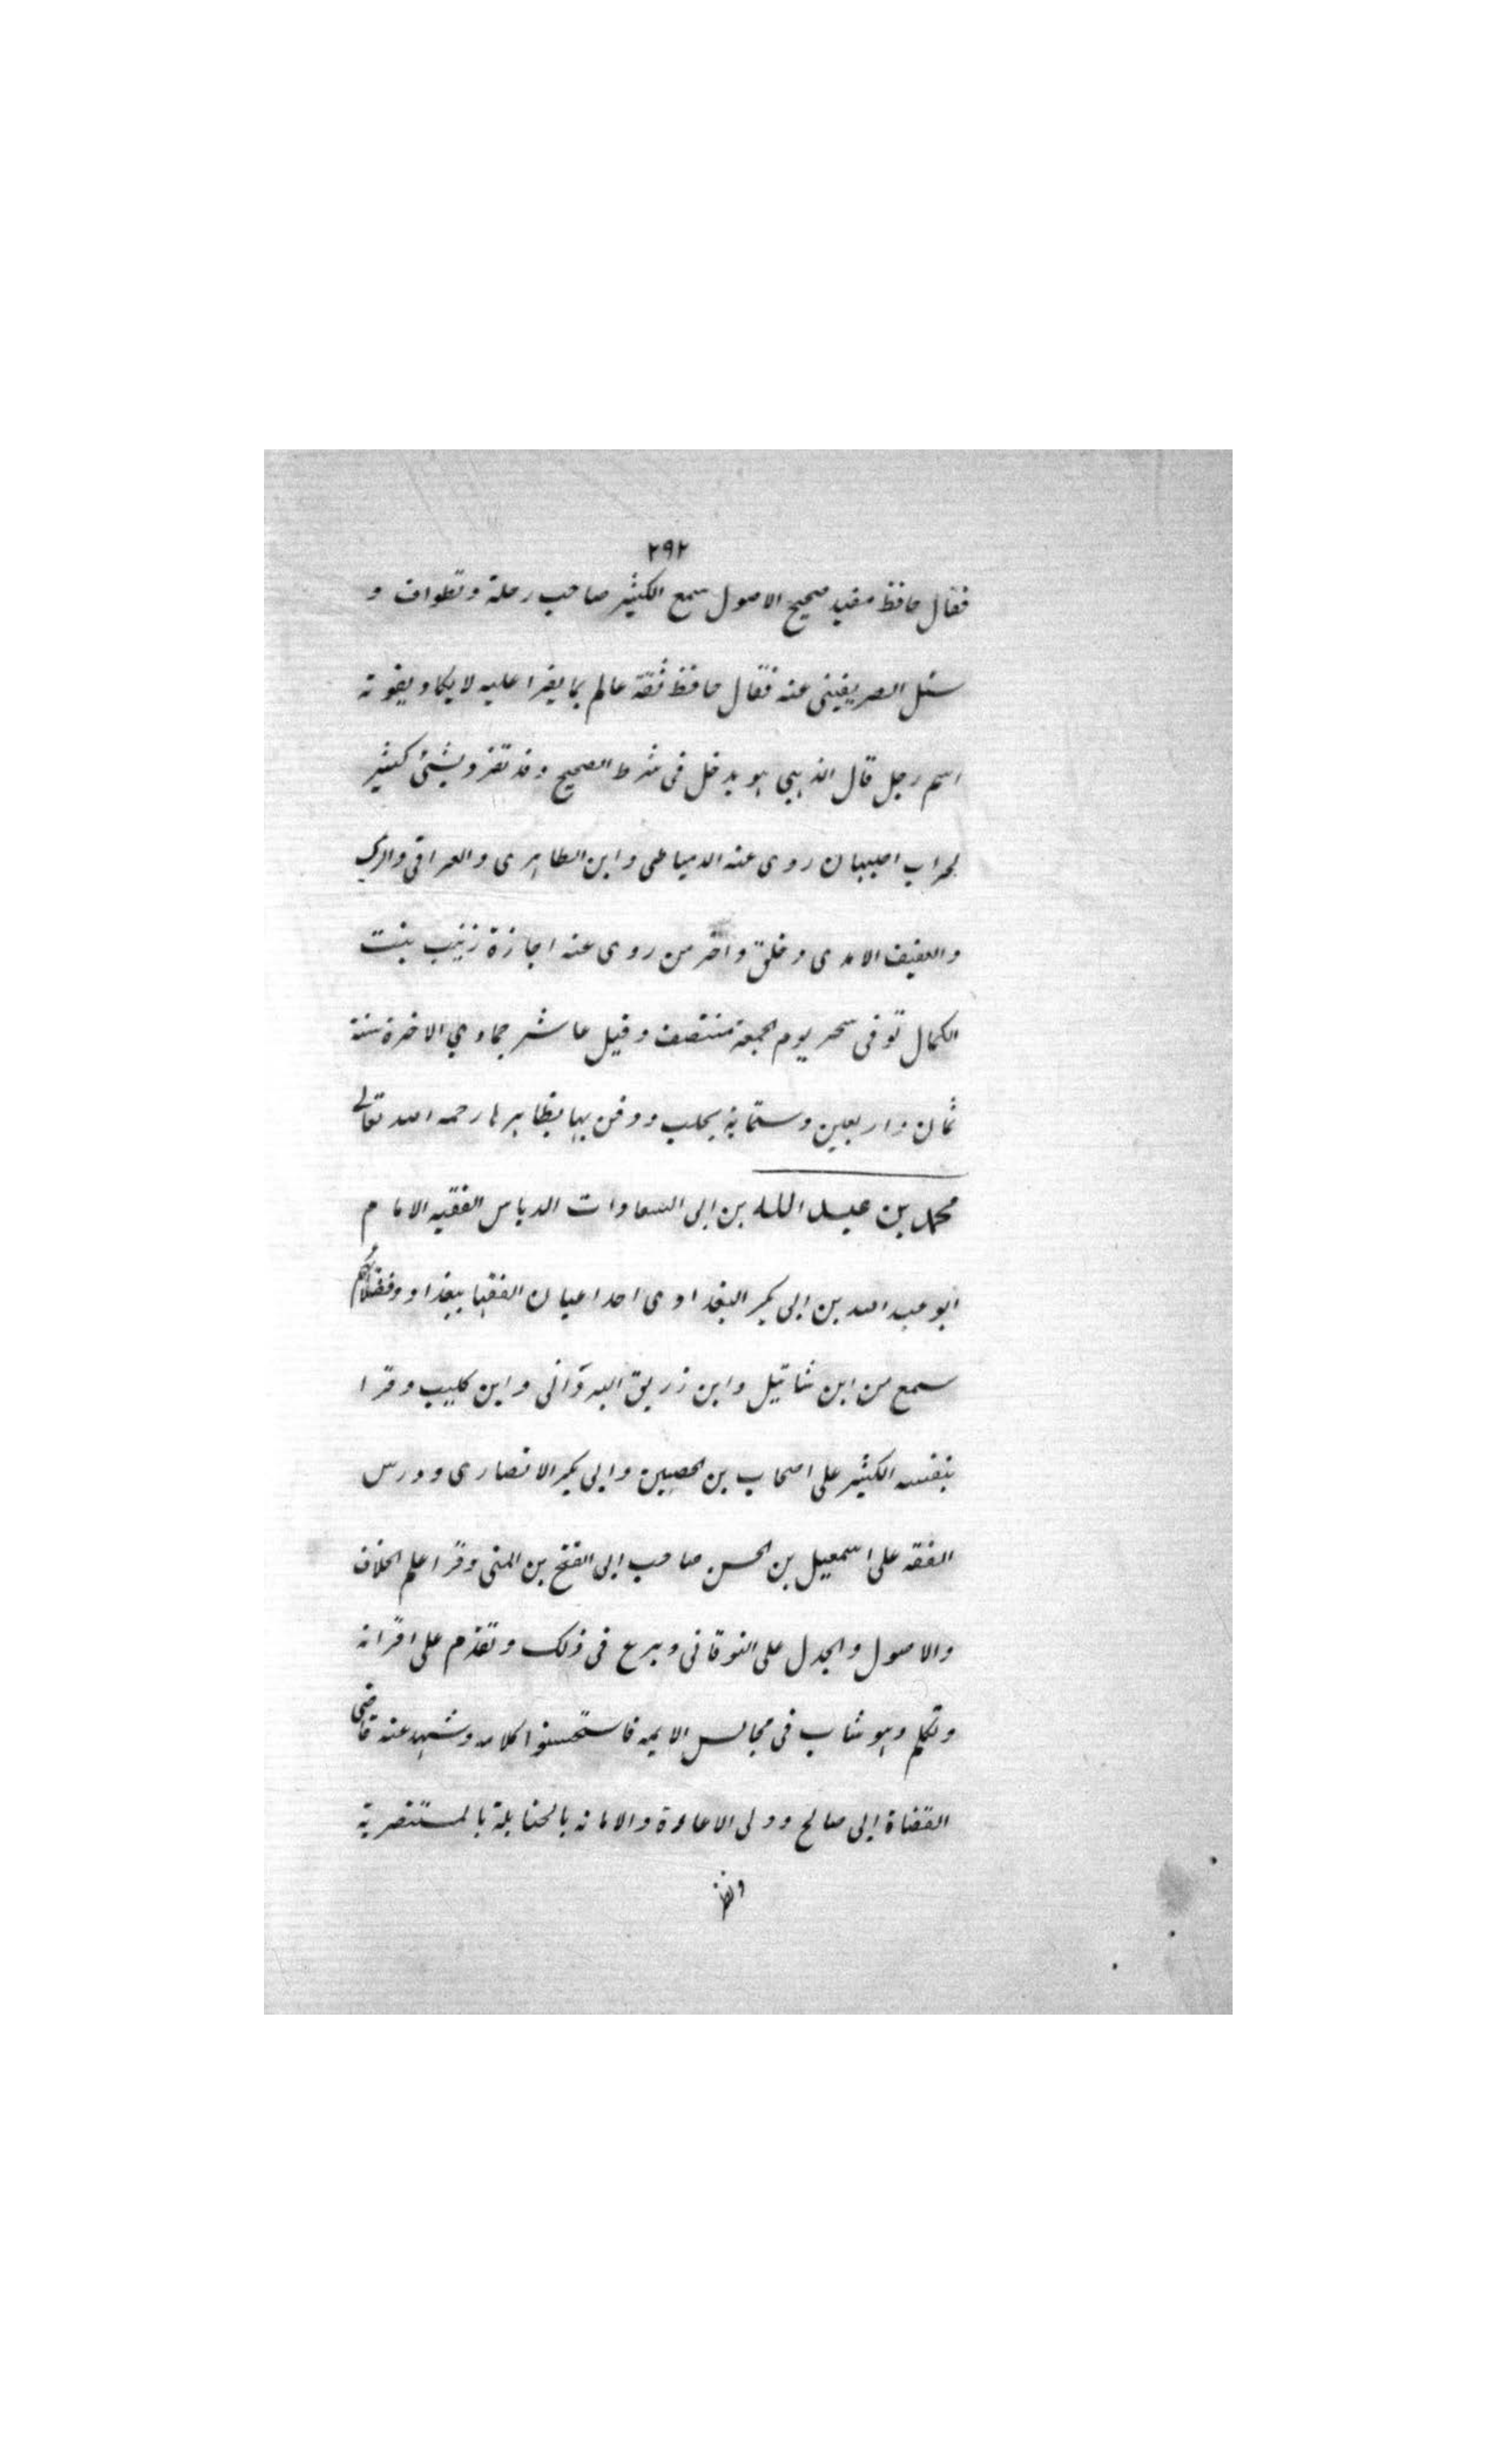 ٢٩٢
فقال حافظ مفيد صحيح الاصول سمع الكثير صاحب رحلة وتطواف و
سئل الصريفينى عنه فقال حافظ ثقة عالم بما يقرا عليه لا يكاد يفوته
اسم رجل قال الذهبي هو يدخل فى شرط الصحيح وقد تفرد بشئ كثير
لخراب اصبهان روى عنه الدمياطى وابن الظاهرى والعراقى والدبى
والعفيف الامدى وخلق واخر من روى عنه اجازة زينب بنت
الكمال توفى سحر يوم الجمعة منتصف وقيل عاشر جمادي الاخرة سنة
ثمان واربعين وستماية بحلب ودفن بها بظاهرها رحمه الله تعالى
محمد بن عبد الله بن ابى السعادات الدباس الفقيه الامام
ابو عبد الله بن ابى بكر البغدادى احد اعيان الفقها ببغداد وفضلائهم
سمع من ابن شاتيل وابن زريق البردانى وابن كليب وقرا
بنفسه الكثير على اصحاب بن الحصين وابى بكر الانصارى ودرس
الفقه على اسمعيل بن الحسن صاحب ابى الفتح بن المنى وقرا علم الخلاف
والاصول والجدل على النوقانى وبرع فى ذلك وتقدم على اقرانه
وتكلم وهو شاب فى مجالس الايمه فاستحسنوا كلامه وشهد عنه قاضى
القضاة ابى صالح وولى الاعادة والامانه بالحنابلة بالمستنصرية